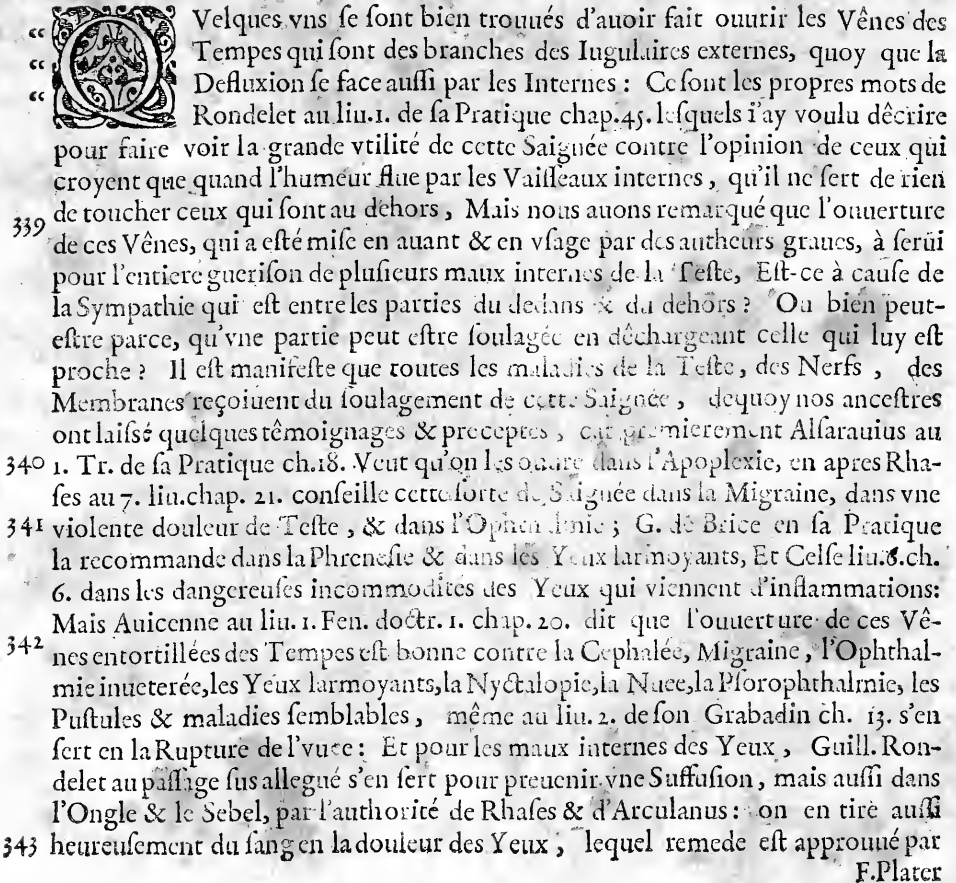 “ QVelques vns ſe ſont bien trouués d'auoir fait ouurir les Vênes des
“ Tempes qui ſont des branches des Iugulaires externes, quoy que la
“ Defluxion ſe face auſſi par les Internes : Ce ſont les propres mots de
Rondelet au liu.1. de ſa Pratique chap.45. leſquels i'ay voulu dêcrire
pour faire voir la grande vtilité de cette Saignée contre l'opinion de ceux qui
croyent que quand l'humeur flue par les Vaiſſeaux internes, qu'il ne ſert de rien
339 de toucher ceux qui ſont au dehors, Mais nous auons remarqué que l'ouuerture
de ces Vênes, qui a eſté miſe en auant & en vſage par des autheurs graues, à ſerui
pour l'entiere gueriſon de pluſieurs maux internes de la Teſte, Eſt-ce à cauſe de
la Sympathie qui eſt entre les parties du dedans & du dehors ? Ou bien peut-
eſtre parce, qu'vne partie peut eſtre ſoulagée en dêchargeant celle qui luy eſt
proche ? Il eſt manifeſte que toutes les maladies de la Teſte, des Nerfs, des
Membranes reçoiuent du ſoulagement de cette Saignée, dequoy nos anceſtres
ont laiſsé quelques têmoignages & preceptes, car premierement Alſarauius au
340 1. Tr. de ſa Pratique ch.18. Veut qu'on les ouure dans l'Apoplexie, en apres Rha-
ſes au 7. liu.chap. 21. conſeille cette ſorte de Saignée dans la Migraine, dans vne
341 violente douleur de Teſte, & dans l'Ophthalmie ; G. de Brice en ſa Pratique
la recommande dans la Phreneſie & dans les Yeux larmoyants, Et Celſe liu.6.ch.
6. dans les dangereuſes incommodités des Yeux qui viennent d'inflammations:
Mais Auicenne au liu. 1. Fen. doctr. 1. chap. 20. dit que l'ouuerture de ces Vê-
342 nes entortillées des Tempes eſt bonne contre la Cephalée, Migraine, l'Ophthal-
mie inueterée, les Yeux larmoyants, la Nyctalopie, la Nuee, la Pſorophthalmie, les
Puſtules & maladies ſemblables, même au liu. 2. de ſon Grabadin ch. 13. s'en
ſert en la Rupture de l'vuee : Et pour les maux internes des Yeux, Guill. Ron-
delet au paſſage ſus allegué s'en ſert pour preuenir vne Suffuſion, mais auſſi dans
l'Ongle & le Sebel, par l'authorité de Rhaſes & d'Arculanus : on en tire auſſi
343 heureuſement du ſang en la douleur des Yeux, lequel remede eſt approuué par
F.Plater